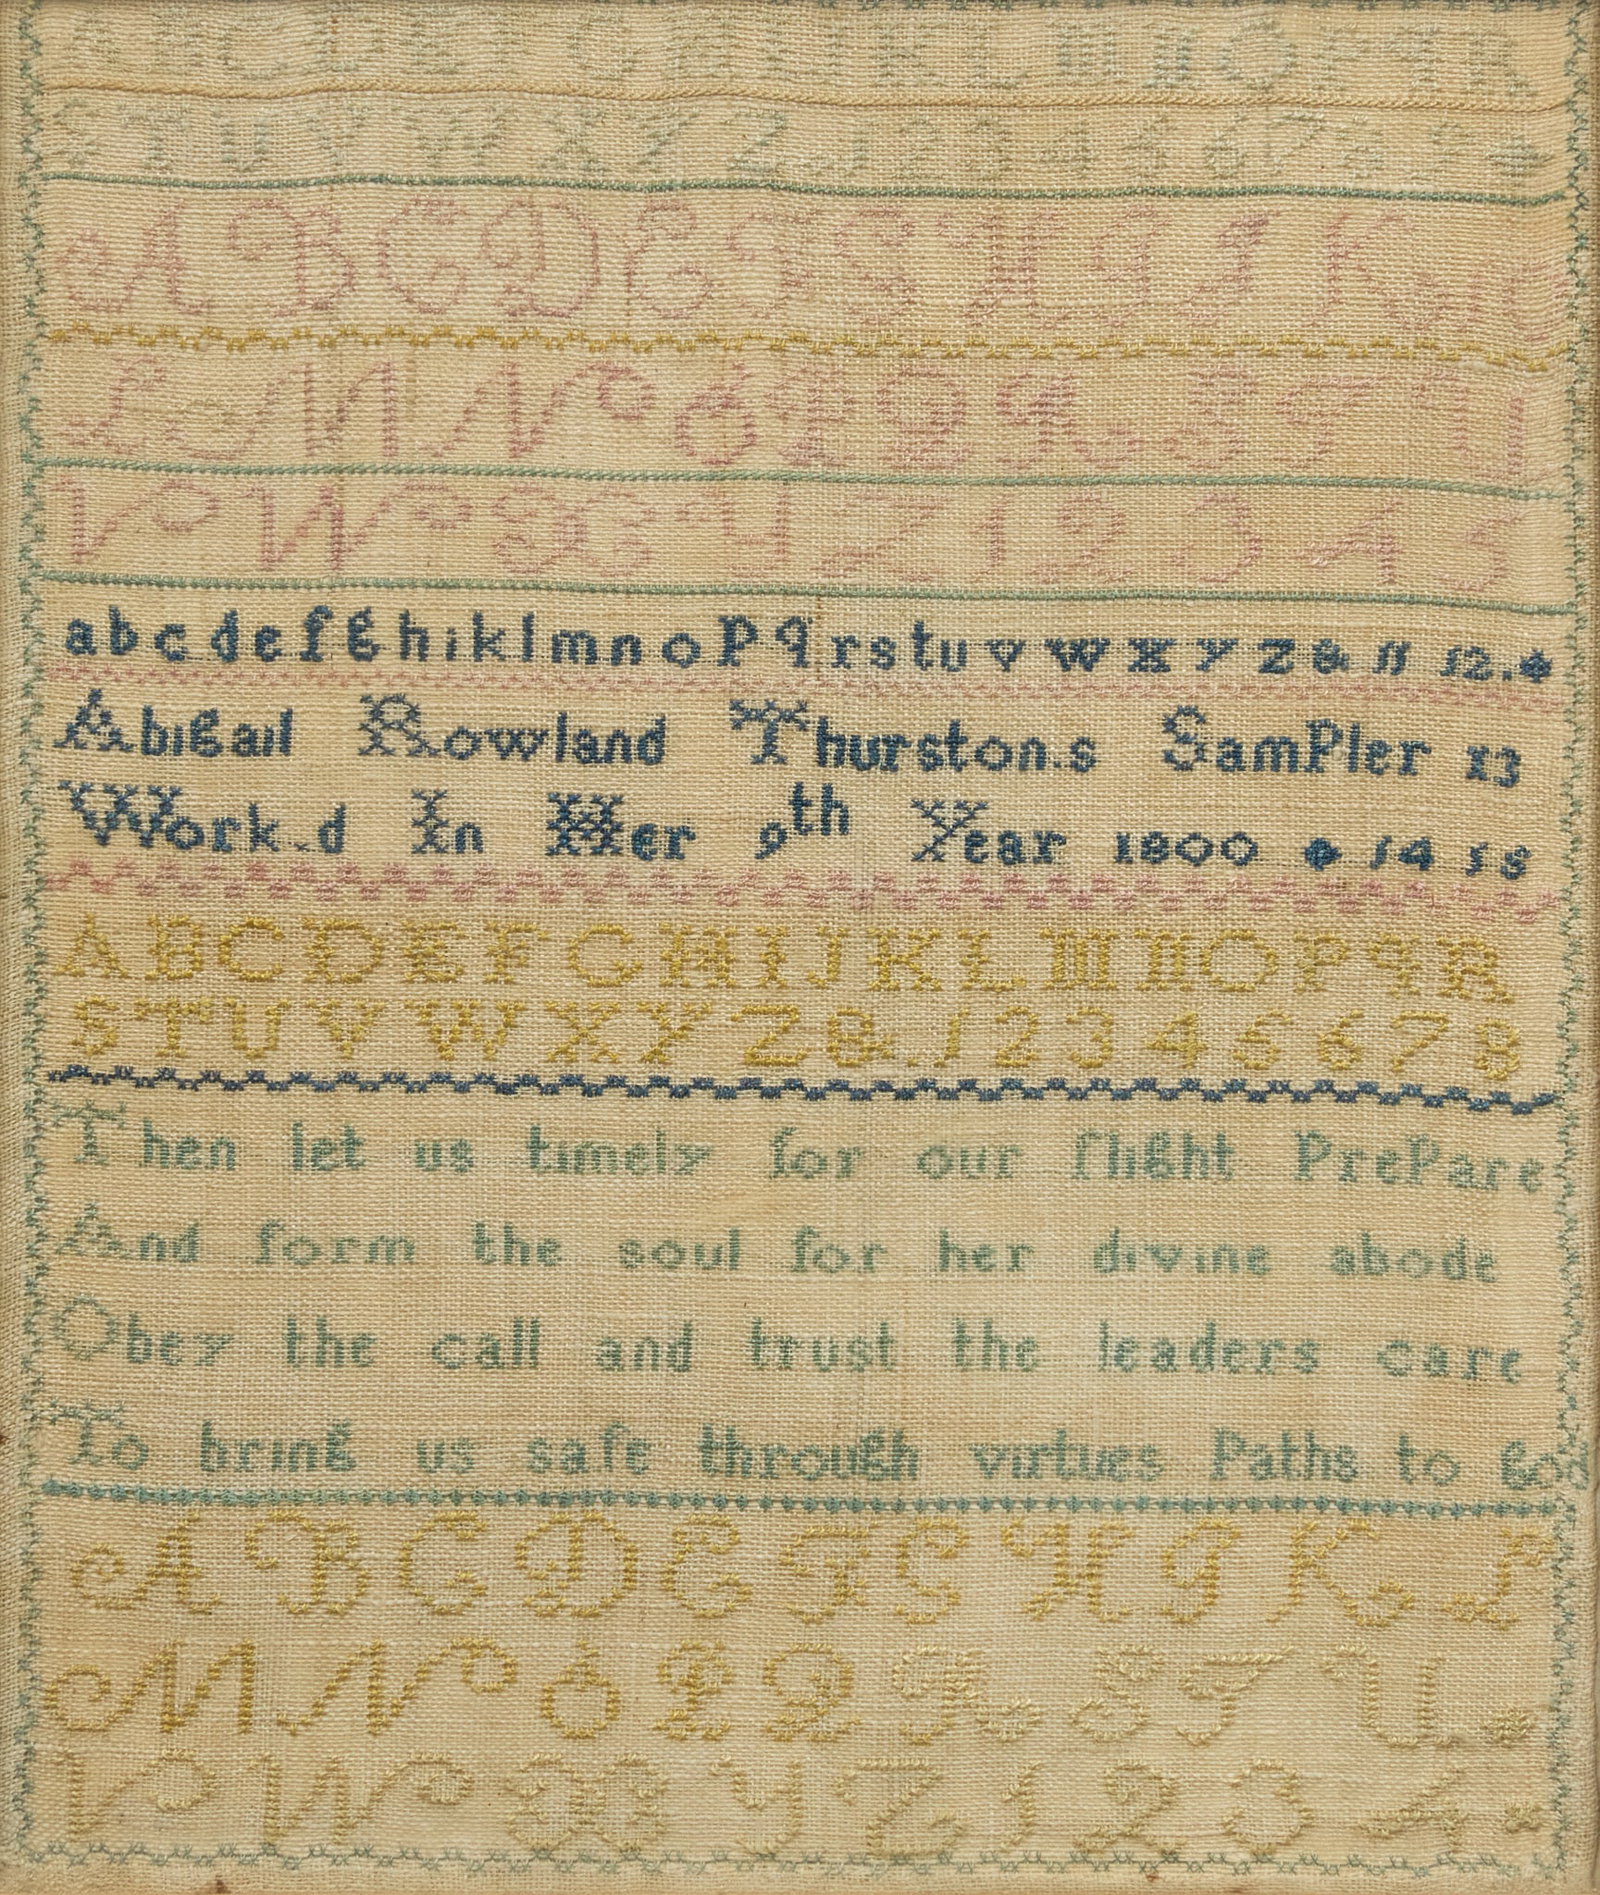 A B C D E F G H I J K L M N O P q R
S T U V W X Y Z . 1 2 3 4 5 6 7 8
A B C D E F G H I J K
L M N O P Q R S T U
V W X Y Z 1 2 3 4 5
a b c d e f g h i k l m n o P q r s t u v w x y z & 11 12.
Abigail Rowland Thurston.s SamPler 13
Work.d In Her 9th Year 1800 14 15
A B C D E F G H I J K L M N O P q R
S T U V W X Y Z & . 1 2 3 4 5 6 7 8
Then let us timely for our flight PrePare
And form the soul for her divine abode
Obey the call and trust the leaders care
To bring us safe through virtues Paths to God
A B C D E F G H I K L
M N O P Q R S T U
V W X Y Z 1 2 3 4